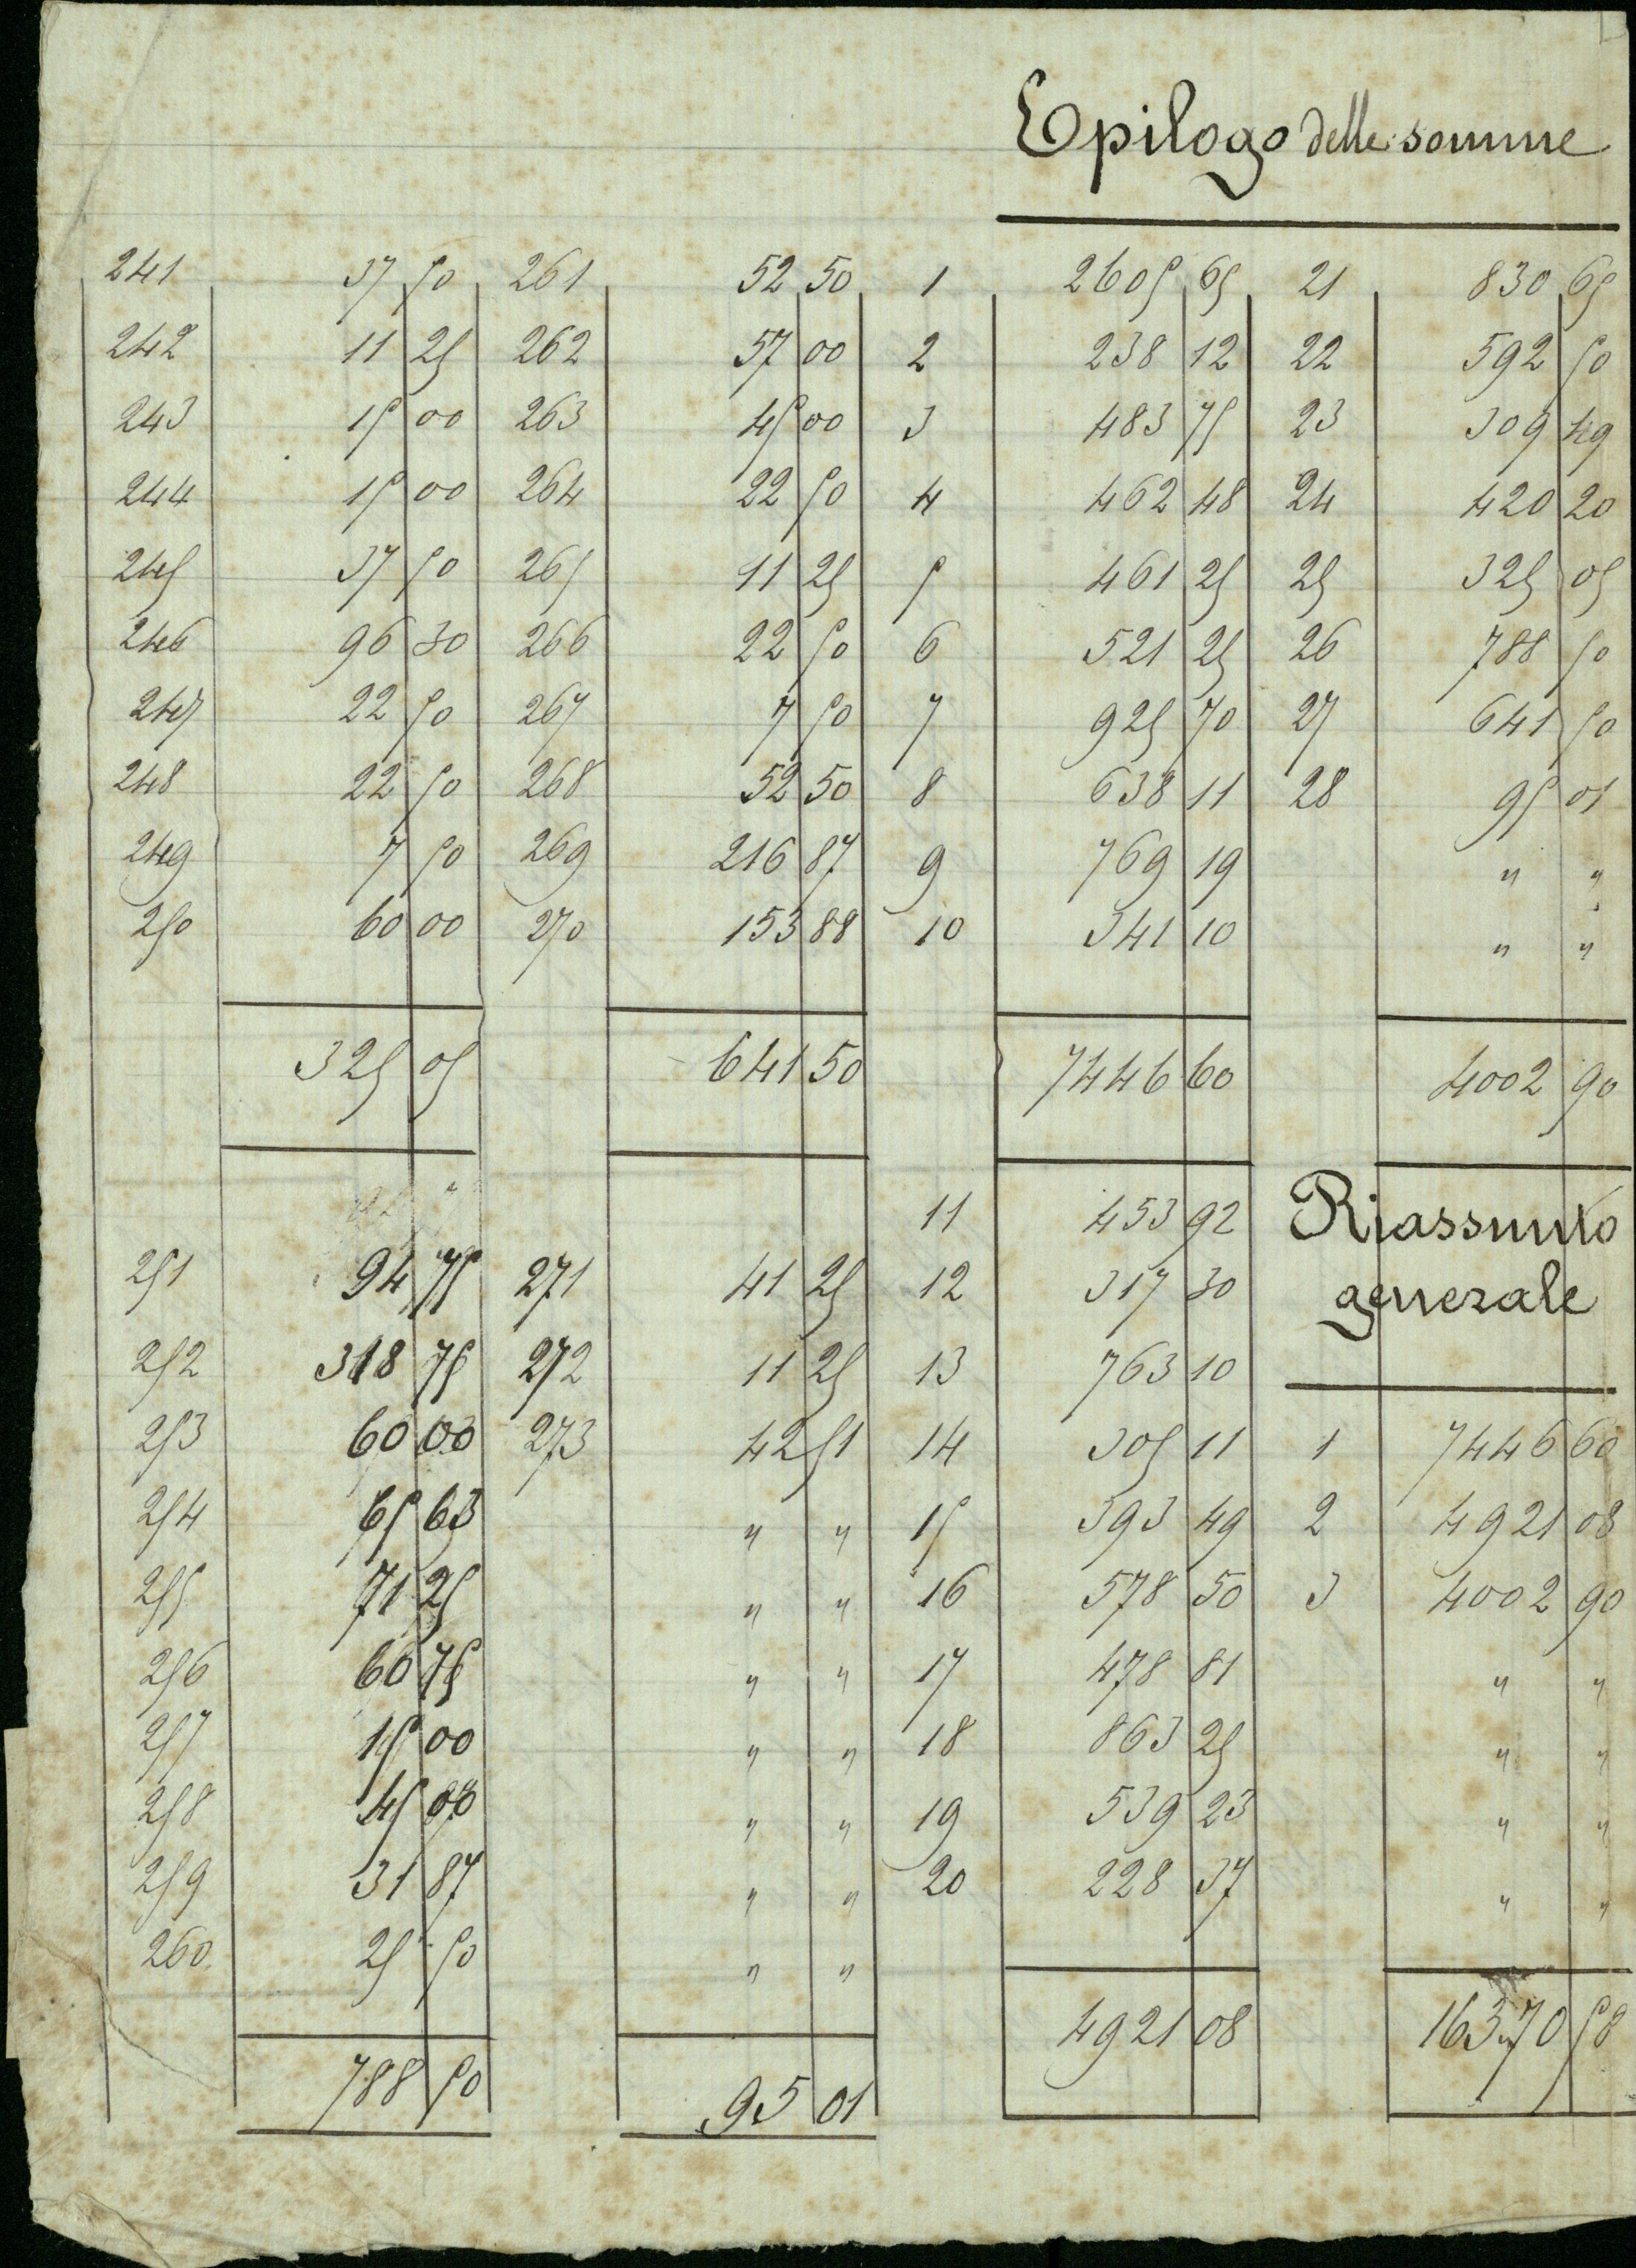 Epilogo delle somme
241 37 50 261 52 50 1 2605 65 21 830 65
242 11 25 262 57 00 2 238 12 22 592 50
243 15 00 263 45 00 3 483 75 23 309 49
244 15 00 264 22 50 4 462 48 24 420 20
245 37 50 265 11 25 5 461 25 25 325 05
246 96 30 266 22 50 6 521 25 26 788 50
247 22 50 267 7 50 7 925 70 27 641 50
248 22 50 268 52 50 8 638 11 28 95 01
249 7 50 269 216 87 9 769 19 " "
250 60 00 270 153 88 10 341 10 " "
325 05 641 50 7446 60 4002 90
11 453 92 Riassunto
251 94 75 271 41 25 12 317 30 generale
252 318 75 272 11 25 13 763 10
253 60 00 273 42 51 14 305 11 1 7446 60
254 65 63 " " 15 393 49 2 4921 08
255 71 25 " " 16 578 50 3 4002 90
256 60 75 " " 17 478 81 " "
257 15 00 " " 18 863 25 " "
258 45 00 " " 19 539 23 " "
259 31 87 " " 20 228 37 " "
260 25 50 " "
4921 08 16370 58
788 50 95 01